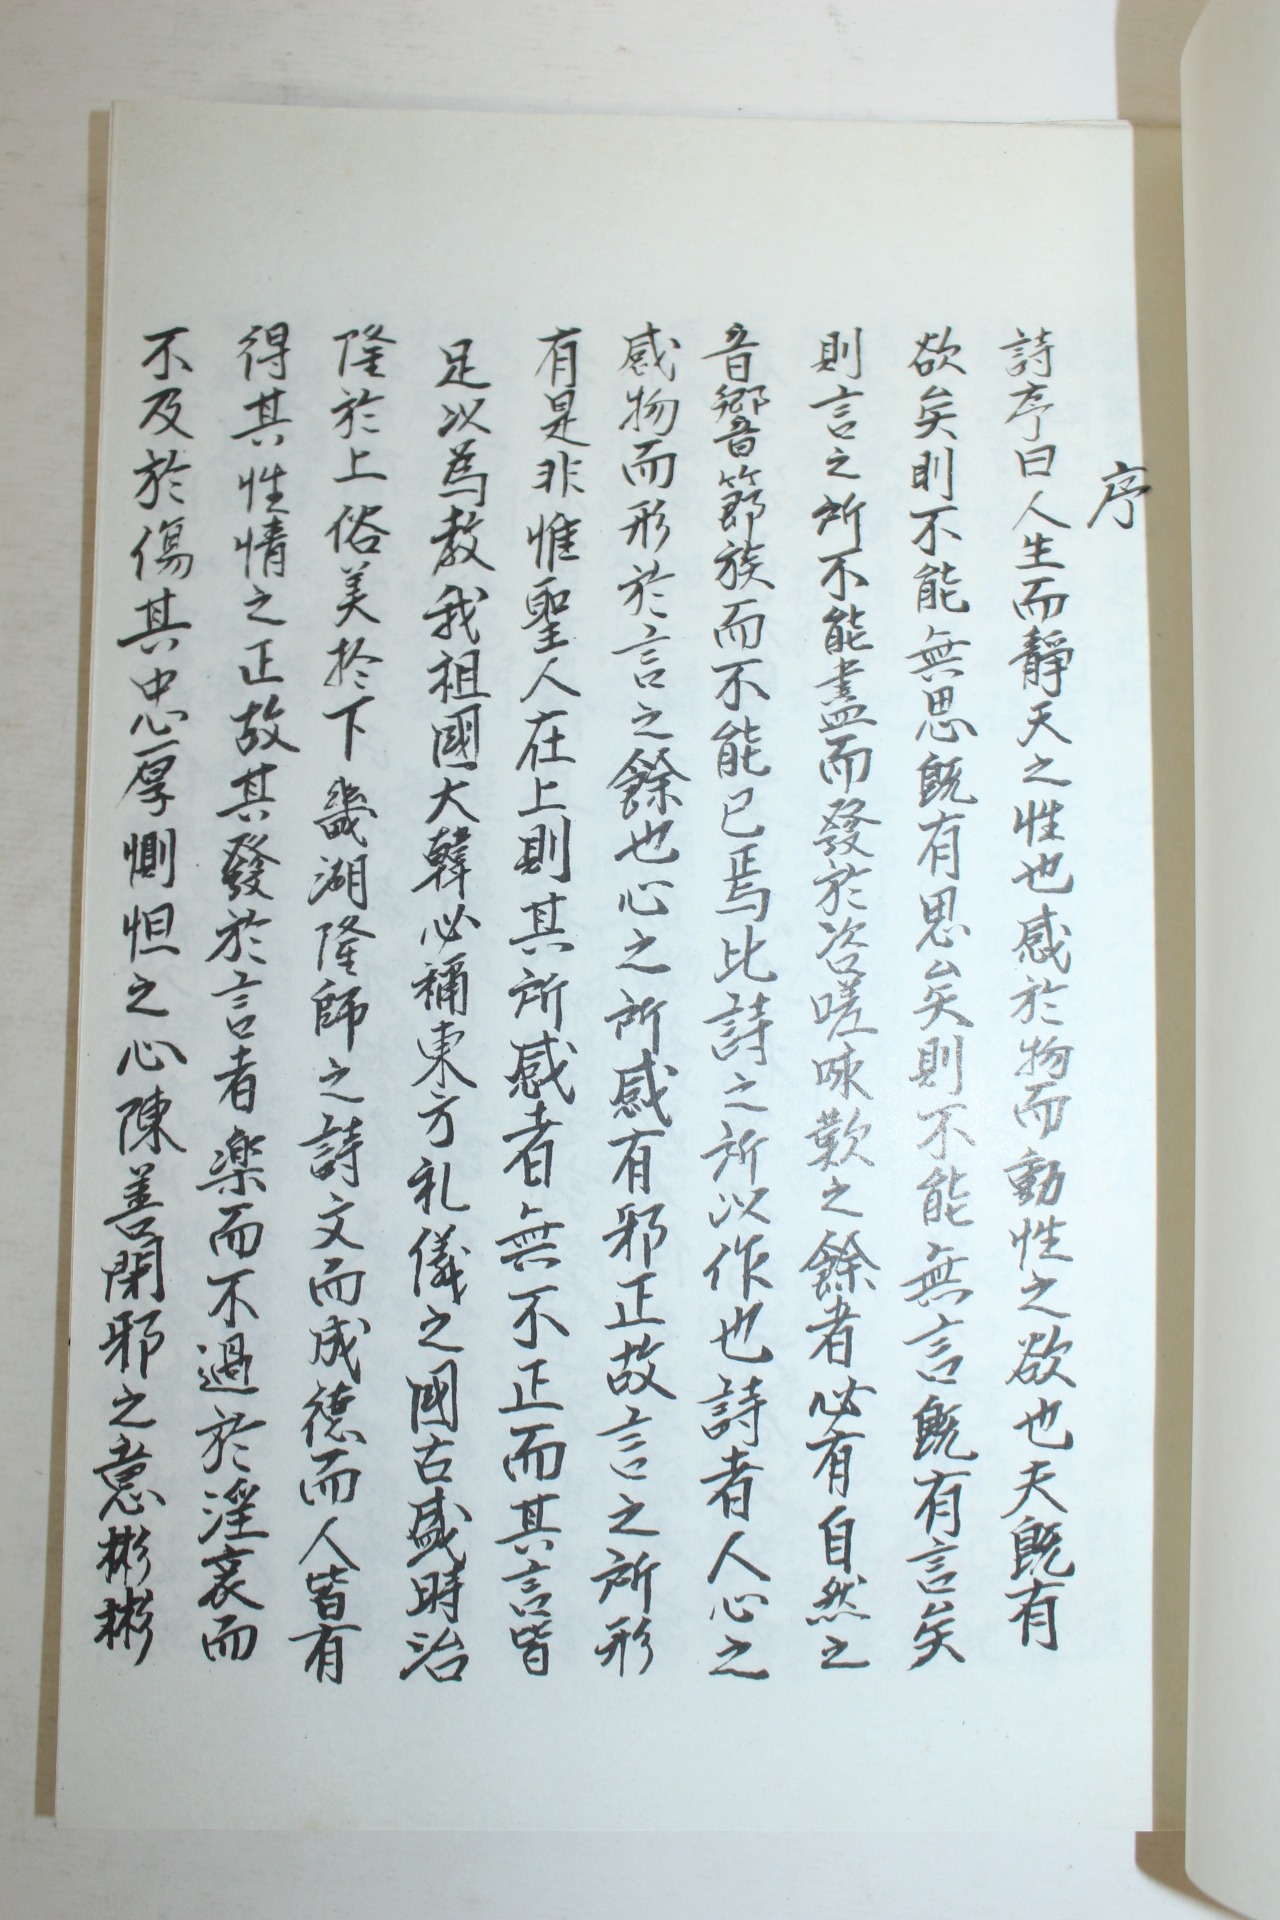 序
詩序曰人生而靜天之性也感於物而動性之欲也夫既有
欲矣則不能無思既有思矣則不能無言既有言矣
則言之所不能盡而發於咨嗟咏歎之餘者必有自然之
音響節族而不能已焉比詩之所以作也詩者人心之
感物而形於言之餘也心之所感有邪正故言之所形
有是非惟聖人在上則其所感者無不正而其言皆
足以為教我祖國大韓必稱東方礼儀之國古盛時治
隆於上俗美於下幾湖隆師之詩文而成德而人皆有
得其性情之正故其發於言者楽而不過於淫哀而
不及於傷其中心厚惻怛之心陳善閉邪之意彬彬